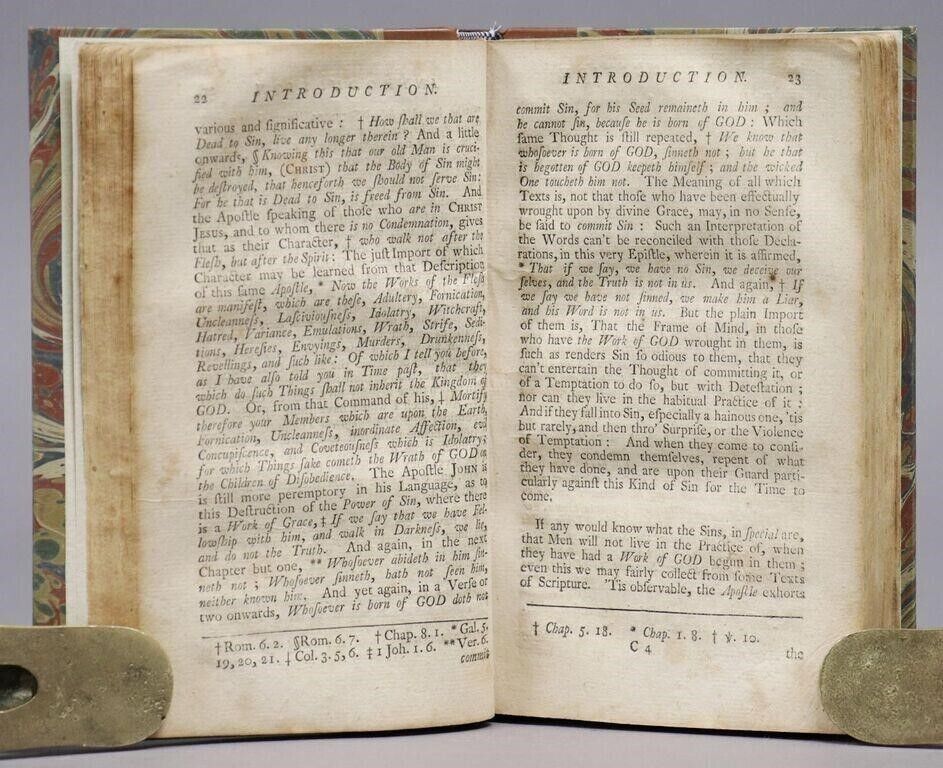 22 INTRODUCTION.
various and significative : † How ſhall we that are
Dead to Sin, live any longer therein ? And a little
onwards, § Knowing this that our old Man is cruci-
fied with him, (CHRIST) that the Body of Sin might
be deſtroyed, that henceforth we ſhould not ſerve Sin:
For he that is Dead to Sin, is freed from Sin. And
the Apoſtle ſpeaking of thoſe who are in CHRIST
JESUS, and to whom there is no Condemnation, gives
that as their Character, † who walk not after the
Fleſh, but after the Spirit : The juſt Import of which
Character may be learned from that Deſcription
of this ſame Apoſtle, * Now the Works of the Fleſh
are manifeſt, which are theſe, Adultery, Fornication,
Uncleanneſs, Laſciviouſneſs, Idolatry, Witchcraft,
Hatred, Variance, Emulations, Wrath, Strife, Sedi-
tions, Hereſies, Envyings, Murders, Drunkenneſs,
Revellings, and ſuch like : Of which I tell you before,
as I have alſo told you in Time paſt, that they
which do ſuch Things ſhall not inherit the Kingdom of
GOD. Or, from that Command of his, ⸸ Mortify
therefore your Members which are upon the Earth,
Fornication, Uncleanneſs, inordinate Affection, evil
Concupiſcence, and Coveteouſneſs which is Idolatry;
for which Things ſake cometh the Wrath of GOD on
the Children of Diſobedience. The Apoſtle JOHN is
is ſtill more peremptory in his Language, as to
this Deſtruction of the Power of Sin, where there
is a Work of Grace, ‡ If we ſay that we have Fel-
lowſhip with him, and walk in Darkneſs, we lie,
and do not the Truth. And again, in the next
Chapter but one, ** Whoſoever abideth in him ſin-
neth not ; Whoſoever ſinneth, hath not ſeen him,
neither known him. And yet again, in a Verſe or
two onwards, Whoſoever is born of GOD doth not
† Rom. 6. 2. § Rom. 6. 7. † Chap. 8. 1. * Gal. 5.
19, 20, 21. ⸸ Col. 3. 5, 6. ‡ 1 Joh. 1. 6. ** Ver. 6.
commit
INTRODUCTION. 23
commit Sin, for his Seed remaineth in him ; and
he cannot ſin, becauſe he is born of GOD : Which
ſame Thought is ſtill repeated, † We know that
whoſoever is born of GOD, ſinneth not ; but he that
is begotten of GOD keepeth himſelf ; and the wicked
One toucheth him not. The Meaning of all which
Texts is, not that thoſe who have been effectually
wrought upon by divine Grace, may, in no Senſe,
be ſaid to commit Sin : Such an Interpretation of
the Words can't be reconciled with thoſe Decla-
rations, in this very Epiſtle, wherein it is affirmed,
* That if we ſay, we have no Sin, we deceive our
ſelves, and the Truth is not in us. And again, † If
we ſay we have not ſinned, we make him a Liar,
and his Word is not in us. But the plain Import
of them is, That the Frame of Mind, in thoſe
who have the Work of GOD wrought in them, is
ſuch as renders Sin ſo odious to them, that they
can't entertain the Thought of committing it, or
of a Temptation to do ſo, but with Deteſtation ;
nor can they live in the habitual Practice of it :
And if they fall into Sin, eſpecially a hainous one, 'tis
but rarely, and then thro' Surpriſe, or the Violence
of Temptation : And when they come to conſi-
der, they condemn themſelves, repent of what
they have done, and are upon their Guard parti-
cularly againſt this Kind of Sin for the Time to
come.
If any would know what the Sins, in ſpecial are,
that Men will not live in the Practice of, when
they have had a Work of GOD begun in them ;
even this we may fairly collect from ſome Texts
of Scripture. 'Tis obſervable, the Apoſtle exhorts
† Chap. 5. 18. * Chap. 1. 8. † ℣. 10.
C 4 the